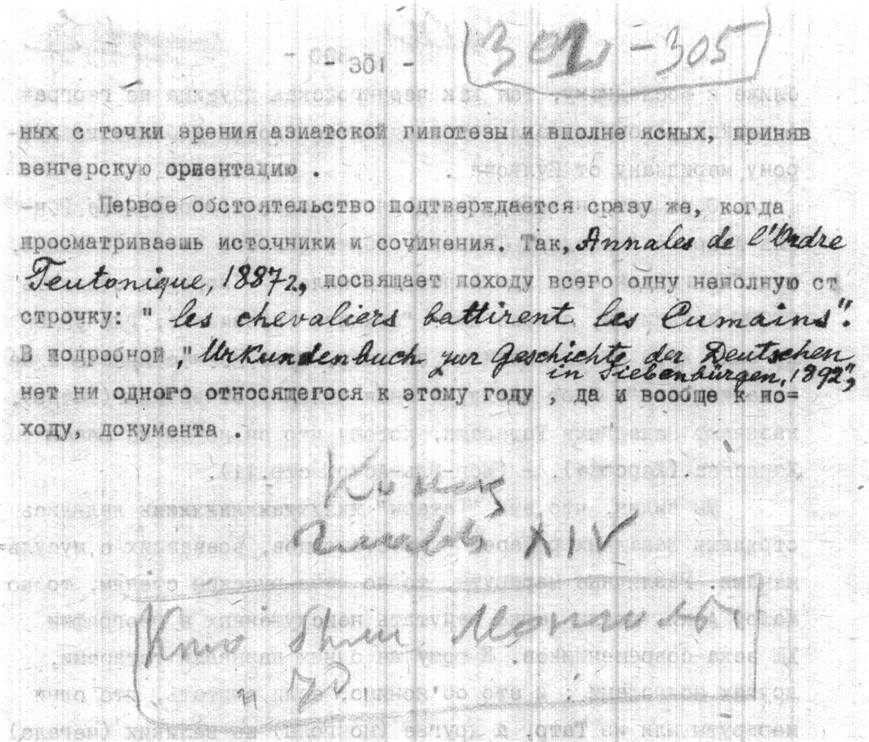 (302 - 305)
- 301 -
ных с точки зрения азиатской гипотезы и вполне ясных, приняв
венгерскую ориентацию .
Первое обстоятельство подтверждается сразу же, когда
просматриваешь источники и сочинения. Так, Annales de l'Ordre
Teutonique, 1887 г., посвящает походу всего одну неполную ст
строчку: " les chevaliers battirent les Cumains".
В подробной ," Urkundenbuch zur Geschichte der Deutschen
in Siebenbürgen, 1892",
нет ни одного относящегося к этому году , да и вообще к по=
ходу, документа .
Конец
главы XIV
Кто были Монголы